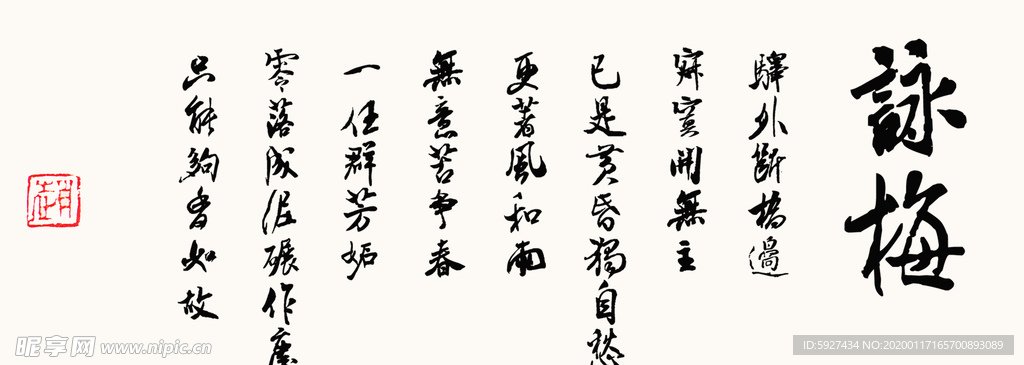 詠梅
驛外斷橋過
寂寞開無主
已是黃昏獨自愁
更著風和雨
無意苦爭春
一任群芳妬
零落成泥碾作塵
只能夠香如故
昵享网 www.nipic.cn
ID:5927434 NO:20200117165700893089